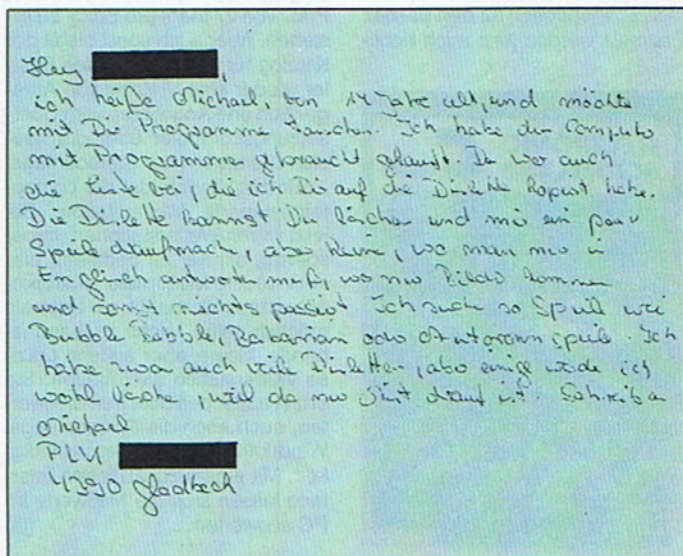 Hey
ich heiße Michael, bin 14 Jahre alt, und möchte
mit Dir Programme tauschen. Ich habe den Computer
mit Programmen gebraucht gekauft. Da war auch
die Liste bei, die ich Dir auf die Diskette kopiert habe.
Die Diskette kannst Du löschen und mir ein paar
Spiele draufmach, aber keine, wo man nur in
Englisch antworten muß, wo nur Bilder kommen
und sonst nichts passiert Ich suche so Spiele wie
Bubble Bobble, Barbarian oder Autorennspiele. Ich
habe zwar auch viele Disketten, aber einige werde ich
wohl lösche, weil da nur Shit drauf ist.
Michael
PLK
4390 Gladbeck